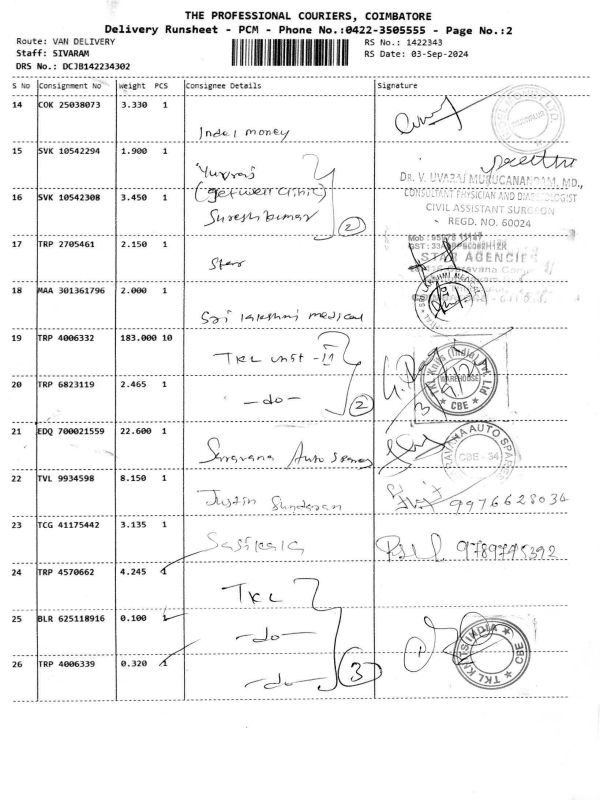 THE PROFESSIONAL COURIERS, COIMBATORE
Delivery Runsheet - PCM - Phone No.:0422-3505555 - Page No.:2
Route: VAN DELIVERY RS No.: 1422343
Staff: SIVARAM RS Date: 03-Sep-2024
DRS No.: DCJB142234302
S No Consignment No Weight PCS Consignee Details Signature
14 COK 25038073 3.330 1
Indel money
15 SVK 10542294 1.900 1
Yuvraj
DR. V. UVARAJ MURUGANANDAM, MD.,
(getwell clinic)
CONSULTANT PHYSICIAN AND DIABETOLOGIST
16 SVK 10542308 3.450 1
CIVIL ASSISTANT SURGEON
Sureshkumar
REGD. NO. 60024
2
17 TRP 2705461 2.150 1
STAR AGENCIES
Star
18 MAA 301361796 2.000 1
Sri lakshmi medical
19 TRP 4006332 183.000 10
TKL unit - II
TKL Knits (India) Pvt. Ltd
WAREHOUSE
CBE
20 TRP 6823119 2.465 1
-do- 2
21 EDQ 700021559 22.600 1
Saravana Auto Spares
CBE - 34
22 TVL 9934598 8.150 1
Justin Sundaran
9976628034
23 TCG 41175442 3.135 1
Sasikala
9789745392
24 TRP 4570662 4.245 1
TKL
25 BLR 625118916 0.100 1
-do-
TKL KNITS INDIA
CBE
26 TRP 4006339 0.320 1
-do- 3